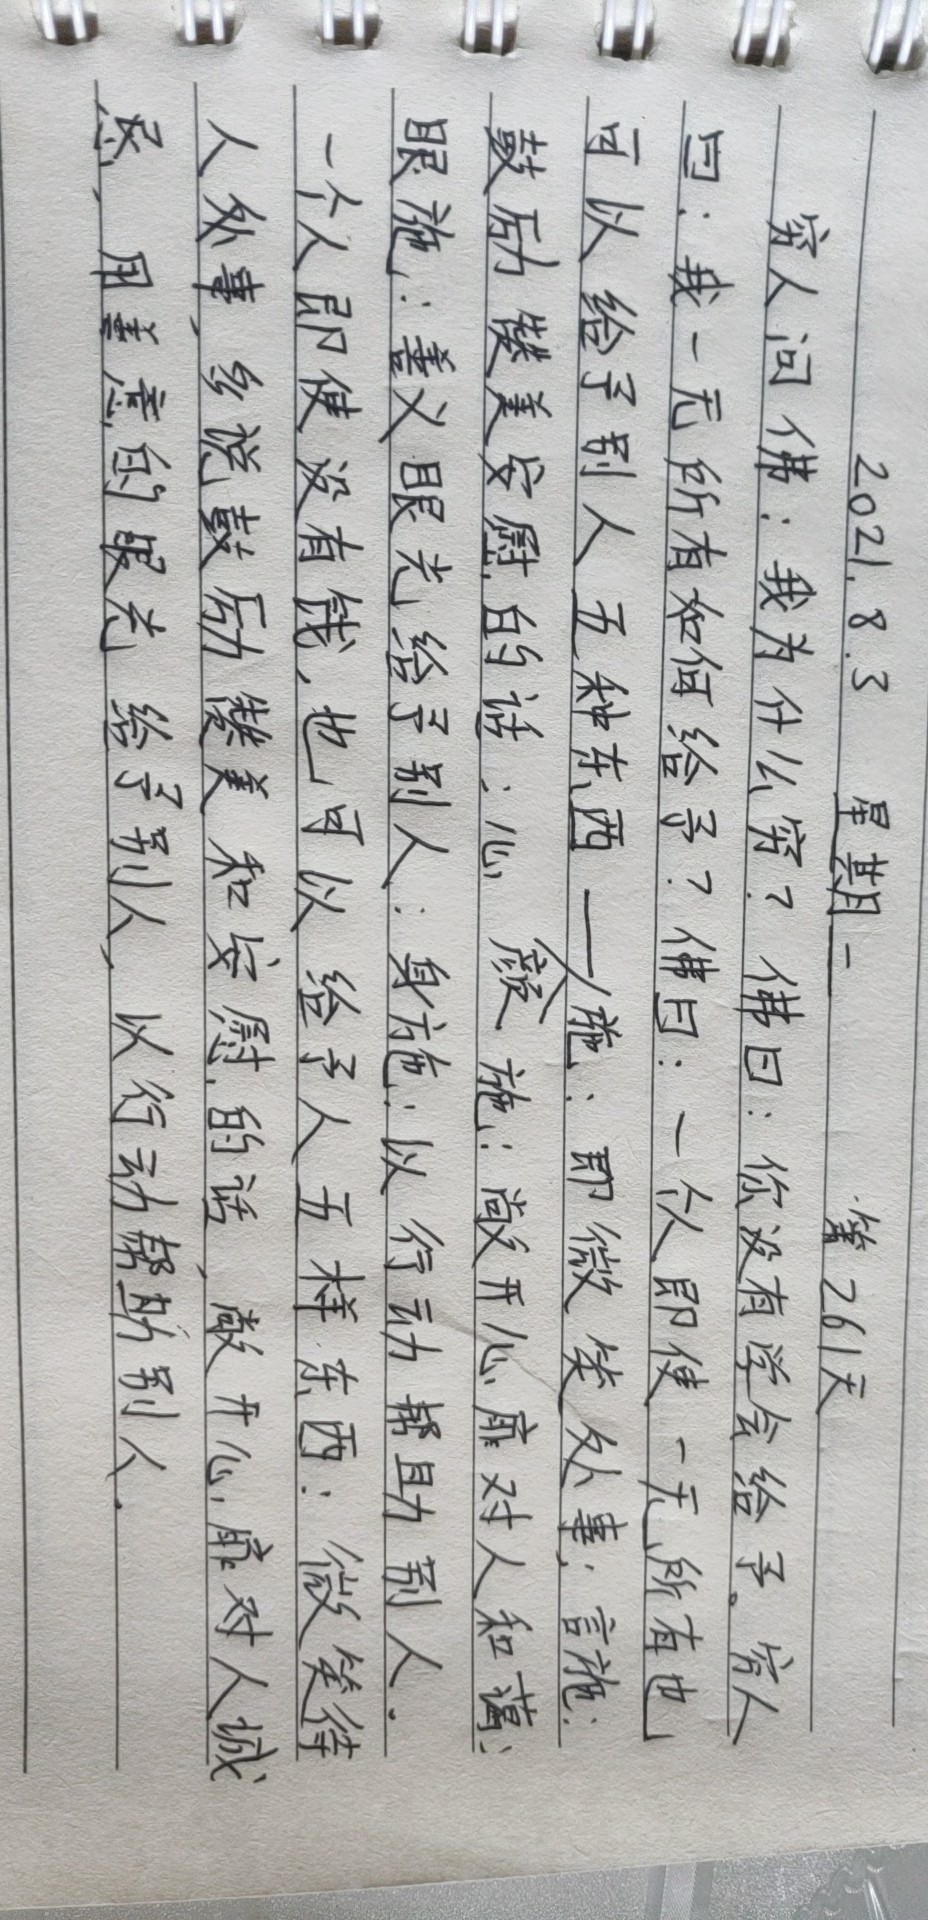 2021.8.3 星期二 第261天
穷人问佛：我为什么穷？佛曰：你没有学会给予。穷人
曰：我一无所有如何给予？佛曰：一个人即使一无所有也
可以给予别人五种东西——颜施：即微笑处事；言施：
鼓励赞美安慰的话；心施：敞开心扉对人和蔼；
眼施：善义眼光给予别人；身施：以行动帮助别人.
一个人即使没有钱，也可以给予人五样东西：微笑待
人处事，多说鼓励赞美和安慰的话，敞开心扉对人诚
恳，用善意的眼光给予别人，以行动帮助别人.